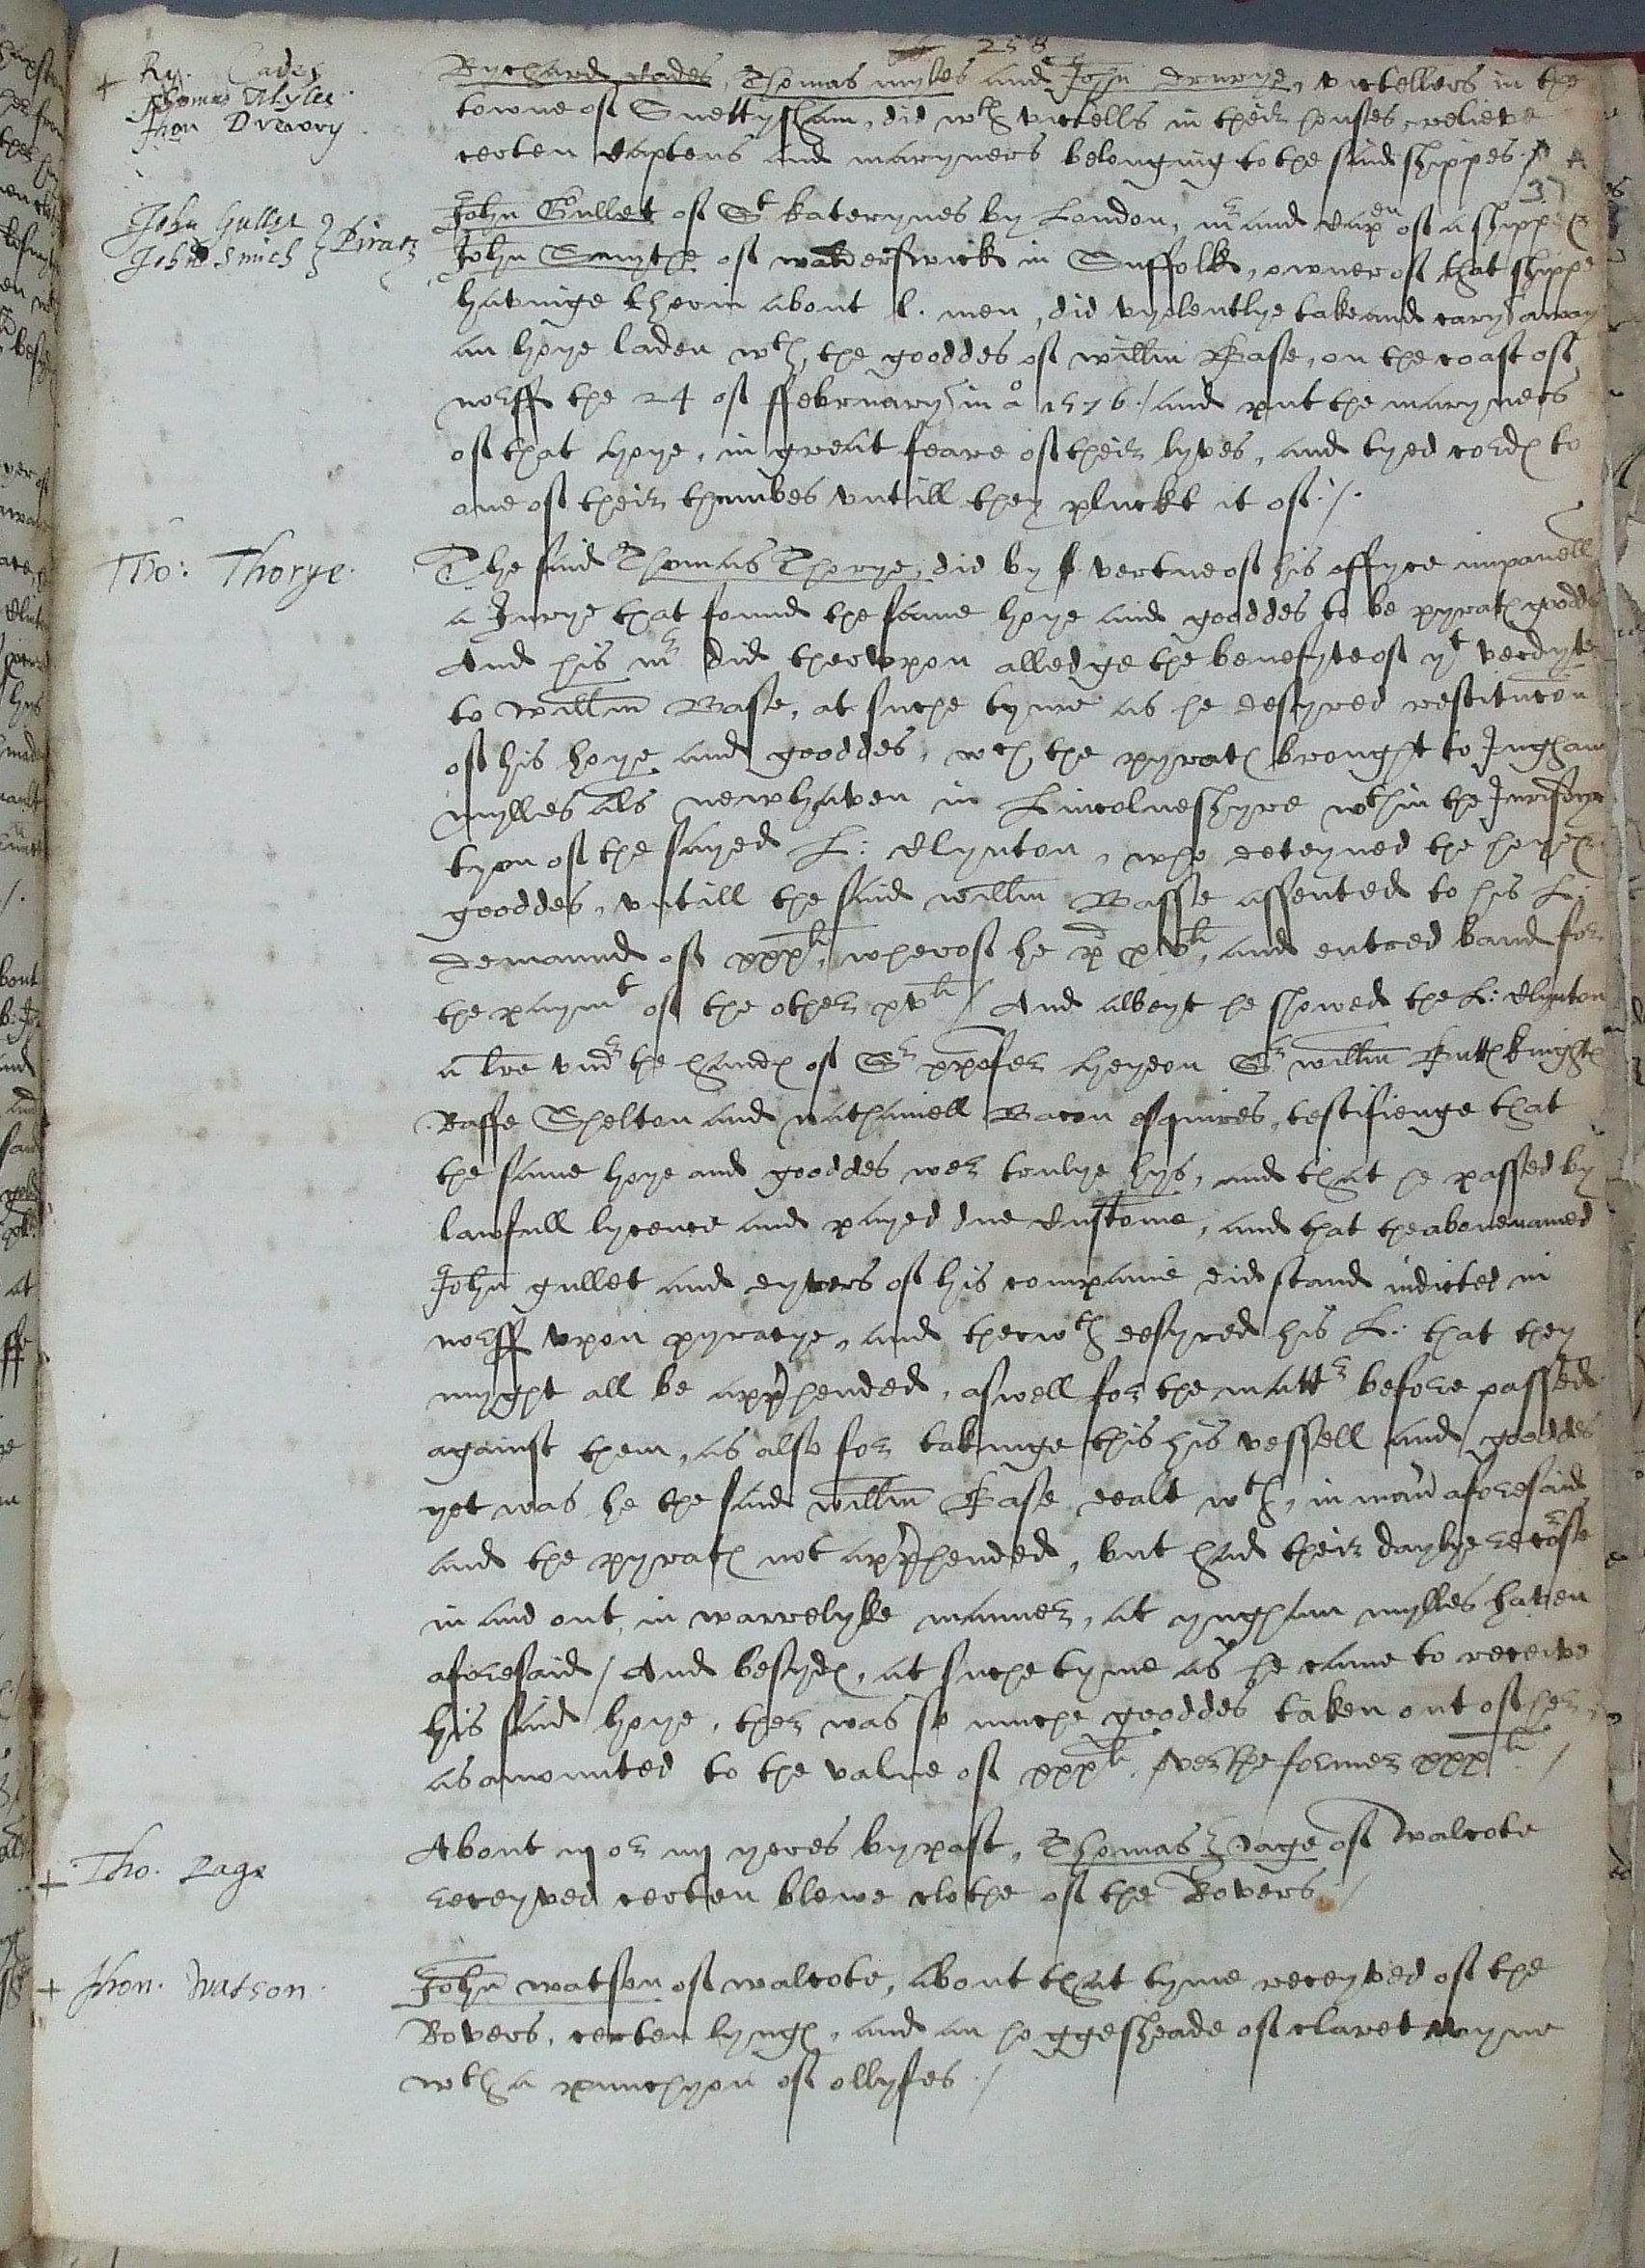 258
Ry. Cades
Thomas Myles
Jhon Drewry
Rychard Cades, Thomas myles and John drurye, victellers in the
towne of Snettysham, did wth victells in their houses, relieve
certen Captens and maryners belonging to the said shippes./
37
John Gullet
John Smith } Piratz
John Gullet of St katerynes by London, mr and Capten of a shippe &
John Smythe of walderswick in Suffolk, owner of that shippe
havinge therin about l. men, did vyolentlye take and cary away
an hoye laden wth the gooddes of willm Base, on the coast of
norff the 24 of ffebruary in ao 1576./ and put the maryners
of that hoye, in great feare of their lyves, and tyed cordes to
one of their thumbes vntill they pluckt it of./.
Tho: Thorye.
The said Thomas Thorye, did by vertue of his offyce impanell
a Jurye that found the same hoye and gooddes to be pyrates goodds
And his mr did therupon alledge the benefyte of yt verdyte
to willm Base, at suche tyme as he desyred restitucon
of his hoye and gooddes, wch the pyrates brought to Ingham
mylles als newhaven in Lincolneshyre wthin the Jurisdyc
tyon of the sayed L: Clynton, who deteyned the hoye &
gooddes, vntill the said willm Basse assented to his L:
demaund of xxxli, wherof he pd xvli, and entred band for
the paymt of the other xvli/ And albeyt he shewed the L: Clynton
a lre vnder the handes of Sr xpofer heydon Sr willm Buttes knightes
Raffe Shelton and nathaniell Bacon esquires, testifienge that
the same hoye and gooddes wer trulye hys, and that he passed by
lawfull lycence and payed due Custome, and that the abovenamed
John gullet and dyvers of his companie did stand indicted in
norff vpon pyracye, and therwth desyred his L: that they
myght all be apphended, aswell for the mattr before passed
against them, as also for takinge this his vessell and gooddes
yet was he the said willm Base dealt wth, in manr aforesaid
and the pyrates not apphended, but had their daylye recorse
in and out, in warrelyke manner, at yngham mylles haven
aforesaid/ And besydes, at suche tyme as he came to receive
his said hoye, ther was so muche gooddes taken out of her,
as amounted to the value of xxxli, over the former xxxli./
Tho. Page
About iij or iiij yeres bypast, Thomas Page of walcote
receyved certen blewe clothe of the Rovers./
Jhon. Watson.
John watson of walcote, about that tyme receyved of the
Rovers, certen lynges, and an hoggesheade of claret wyne
wth a punchyon of ollyfes./